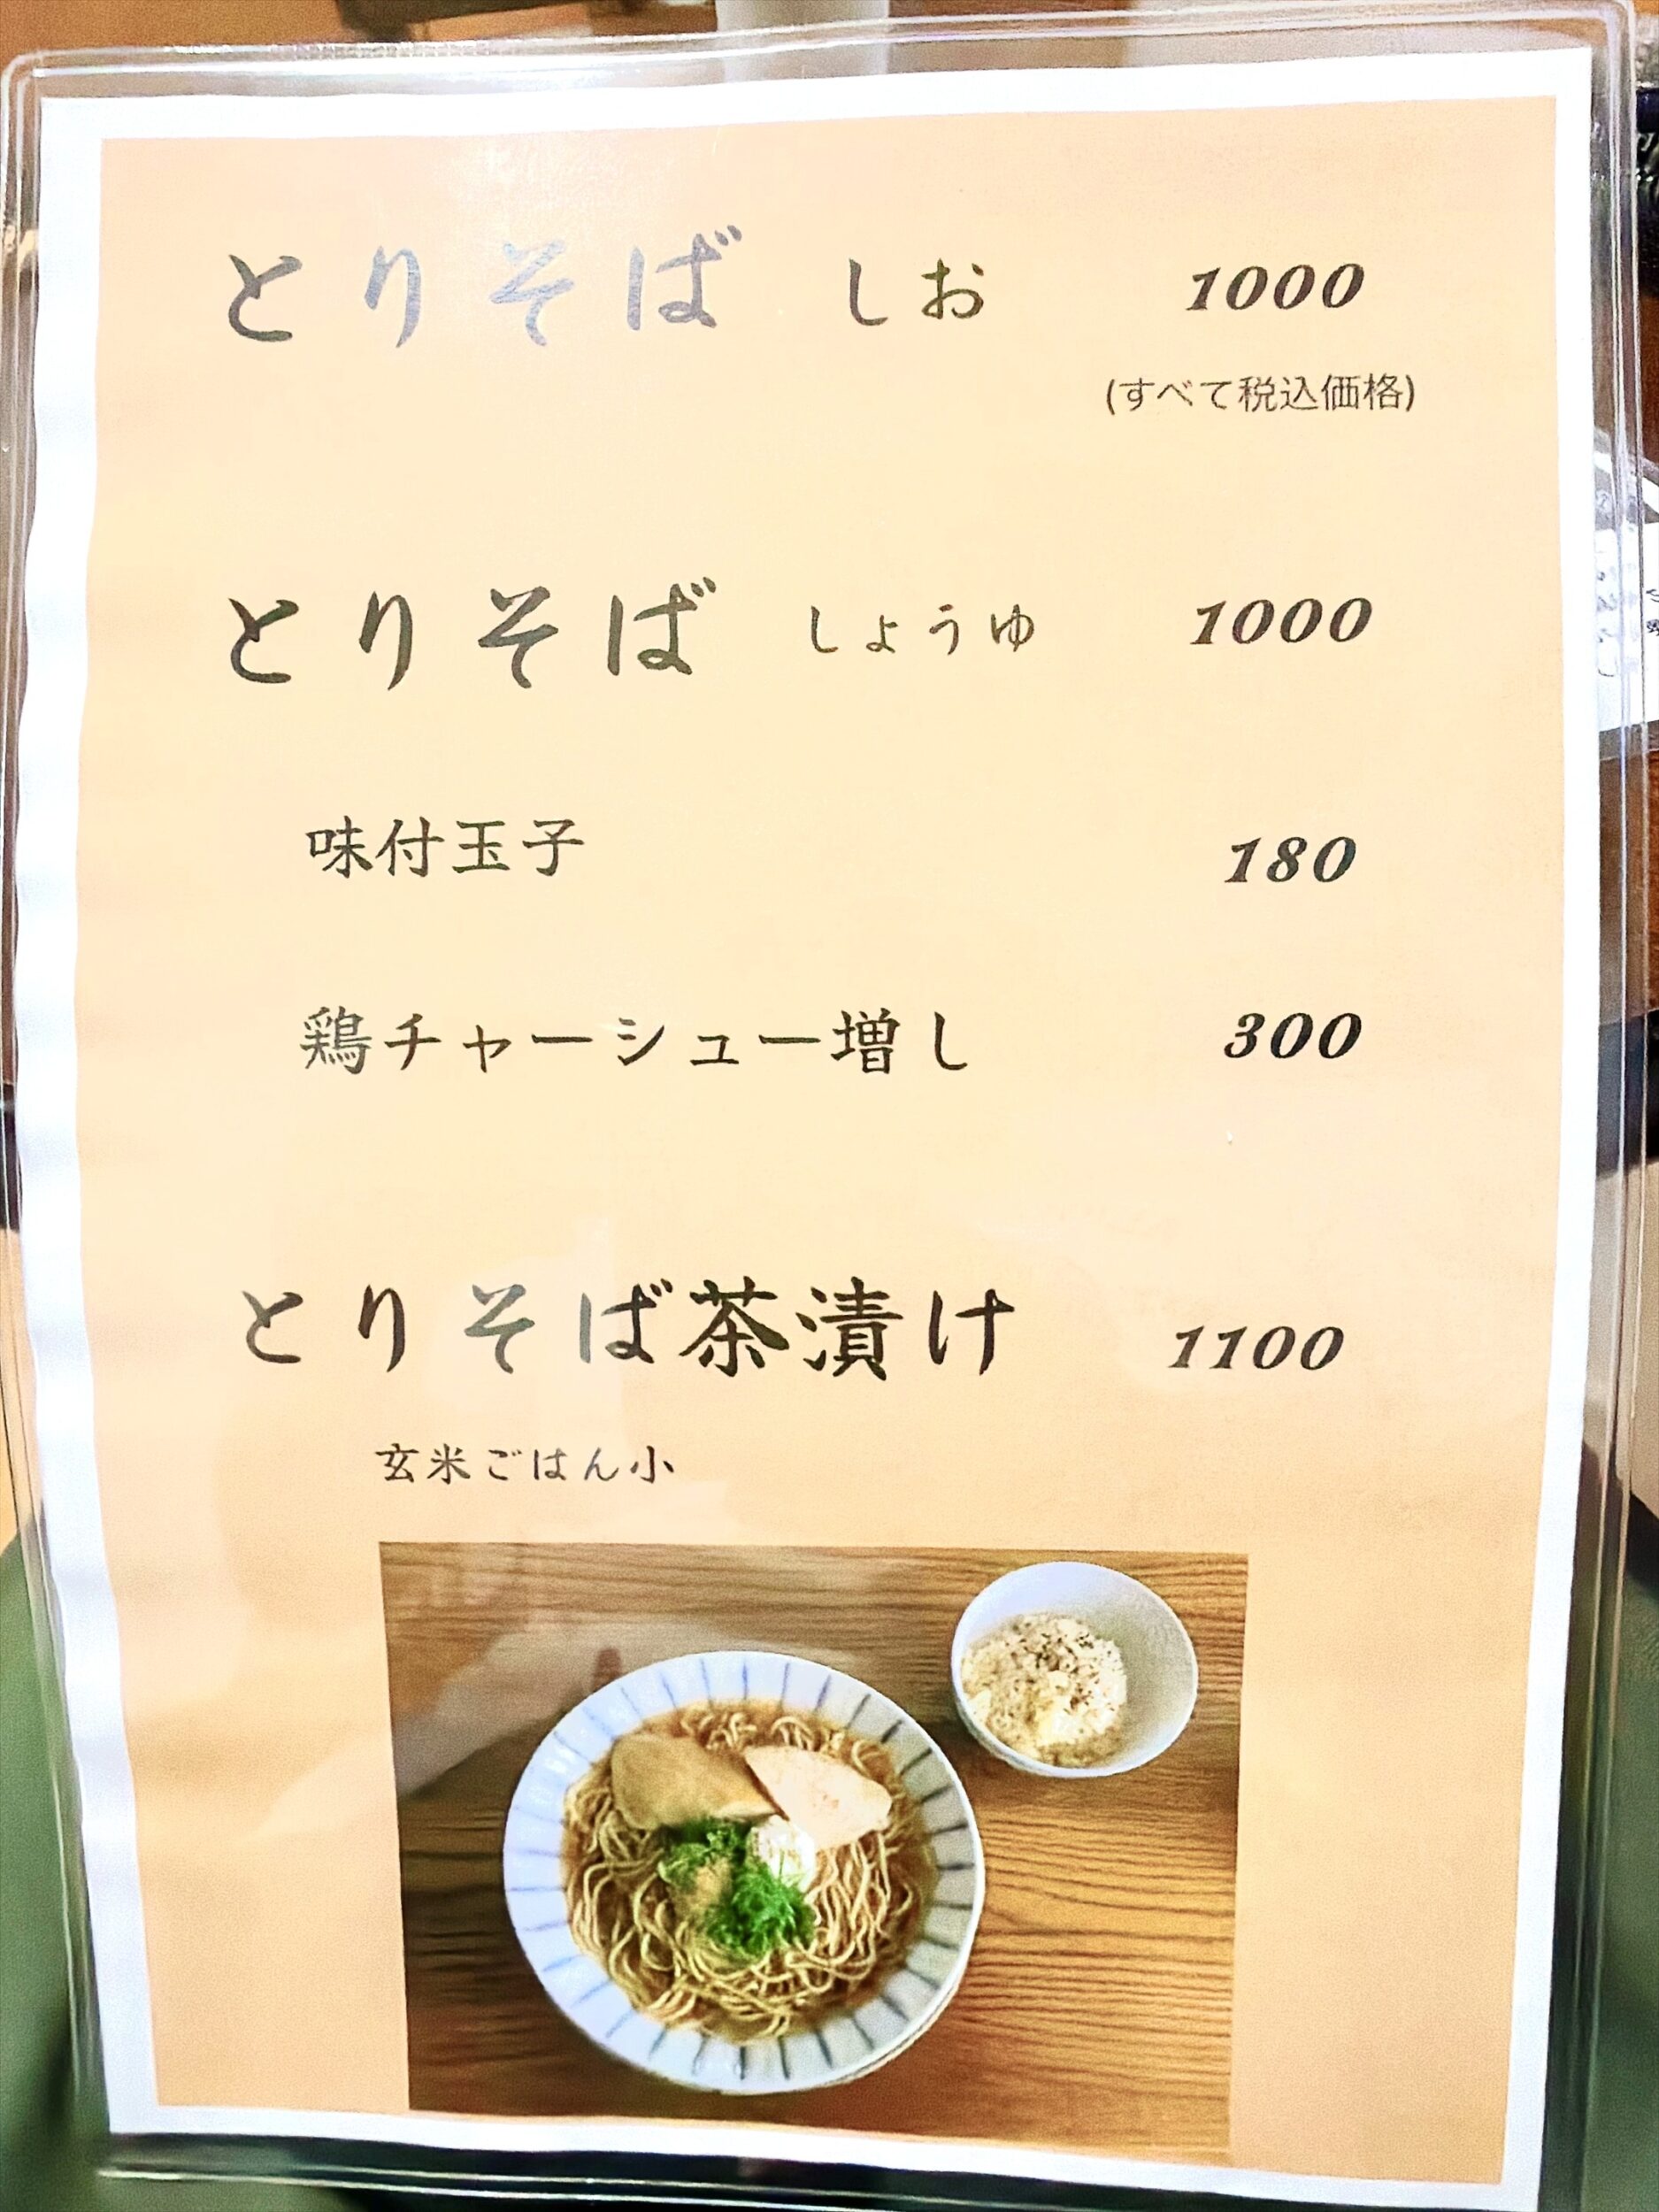 とりそば しお 1000
(すべて税込価格)
とりそば しょうゆ 1000
味付玉子 180
鶏チャーシュー増し 300
とりそば茶漬け 1100
玄米ごはん小